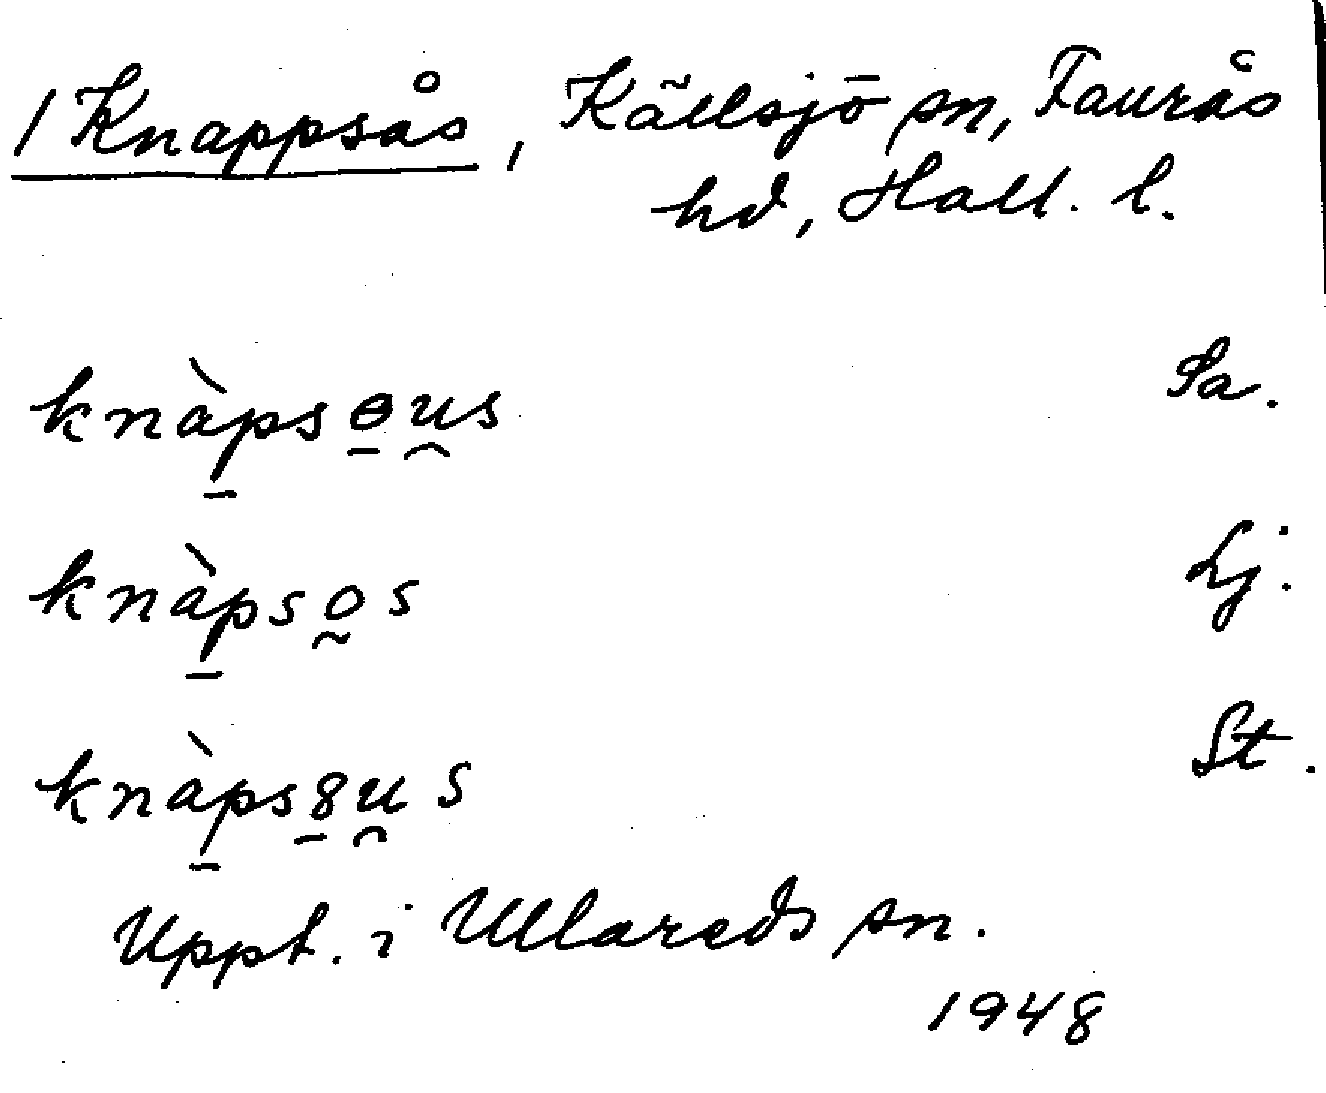 / Knappsås, Källsjö sn, Faurås
hd, Hall. l.
knàp̱sɵ̱u̯s Sa.
knàp̱so̰s Lj.
knàp̱s8̱u̯s St.
Uppt. i Ullareds sn.
1948